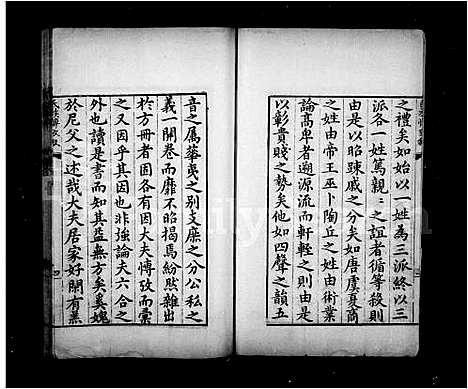 之禮矣如始以一姓為三派終以三
派各一姓篤親之誼者循等殺則
由是以昭踈戚之分矣如唐虞夏商
之姓由帝王巫卜陶丘之姓由術業
論高卑者遡源流而軒輊之則由是
以彰貴賤之勢矣他如四聲之韻五
音之屬華夷之别支庶之分公私之
義一開卷而靡不昭揭焉紛然雜出
於方冊者固各有因大夫慱攷而彙
之又因乎其因也非強論夫六合之
外也讀是書而知其益無方矣奚媿
於尼父之述哉大夫居家好閱有羕